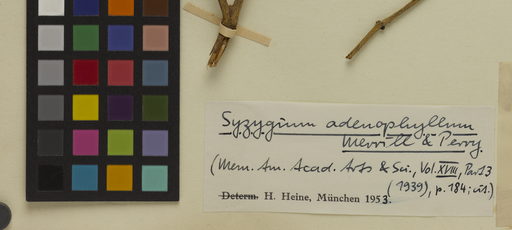 Syzygium adenophyllum
Merrill & Perry
(Mem. Am. Acad. Arts & Sci., Vol. XVIII, Part 3
(1939), p. 184; cit.)
Determ. H. Heine, München 1953.